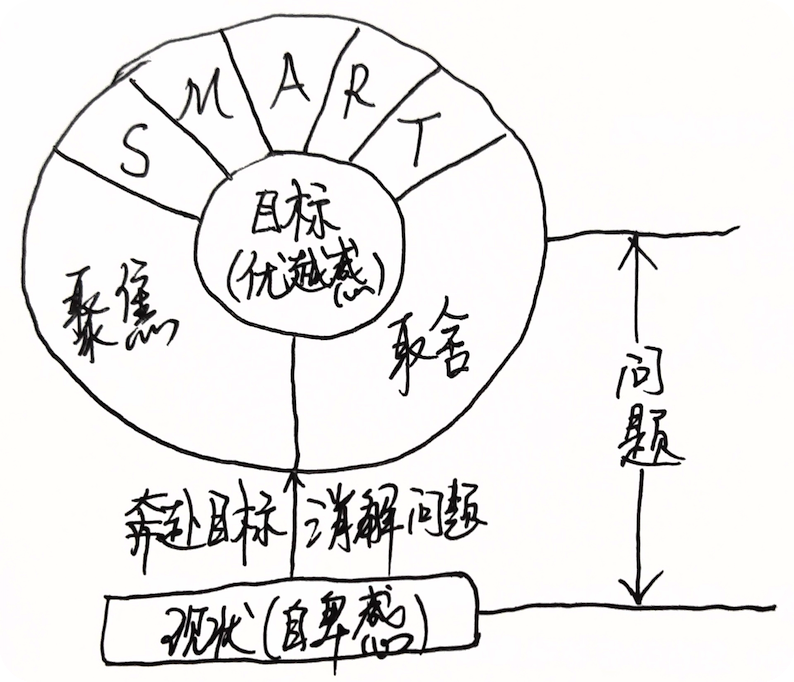 S
M
A
R
T
目标
(优越感)
聚焦
取舍
问
题
奔赴目标 消解问题
现状(自卑感)